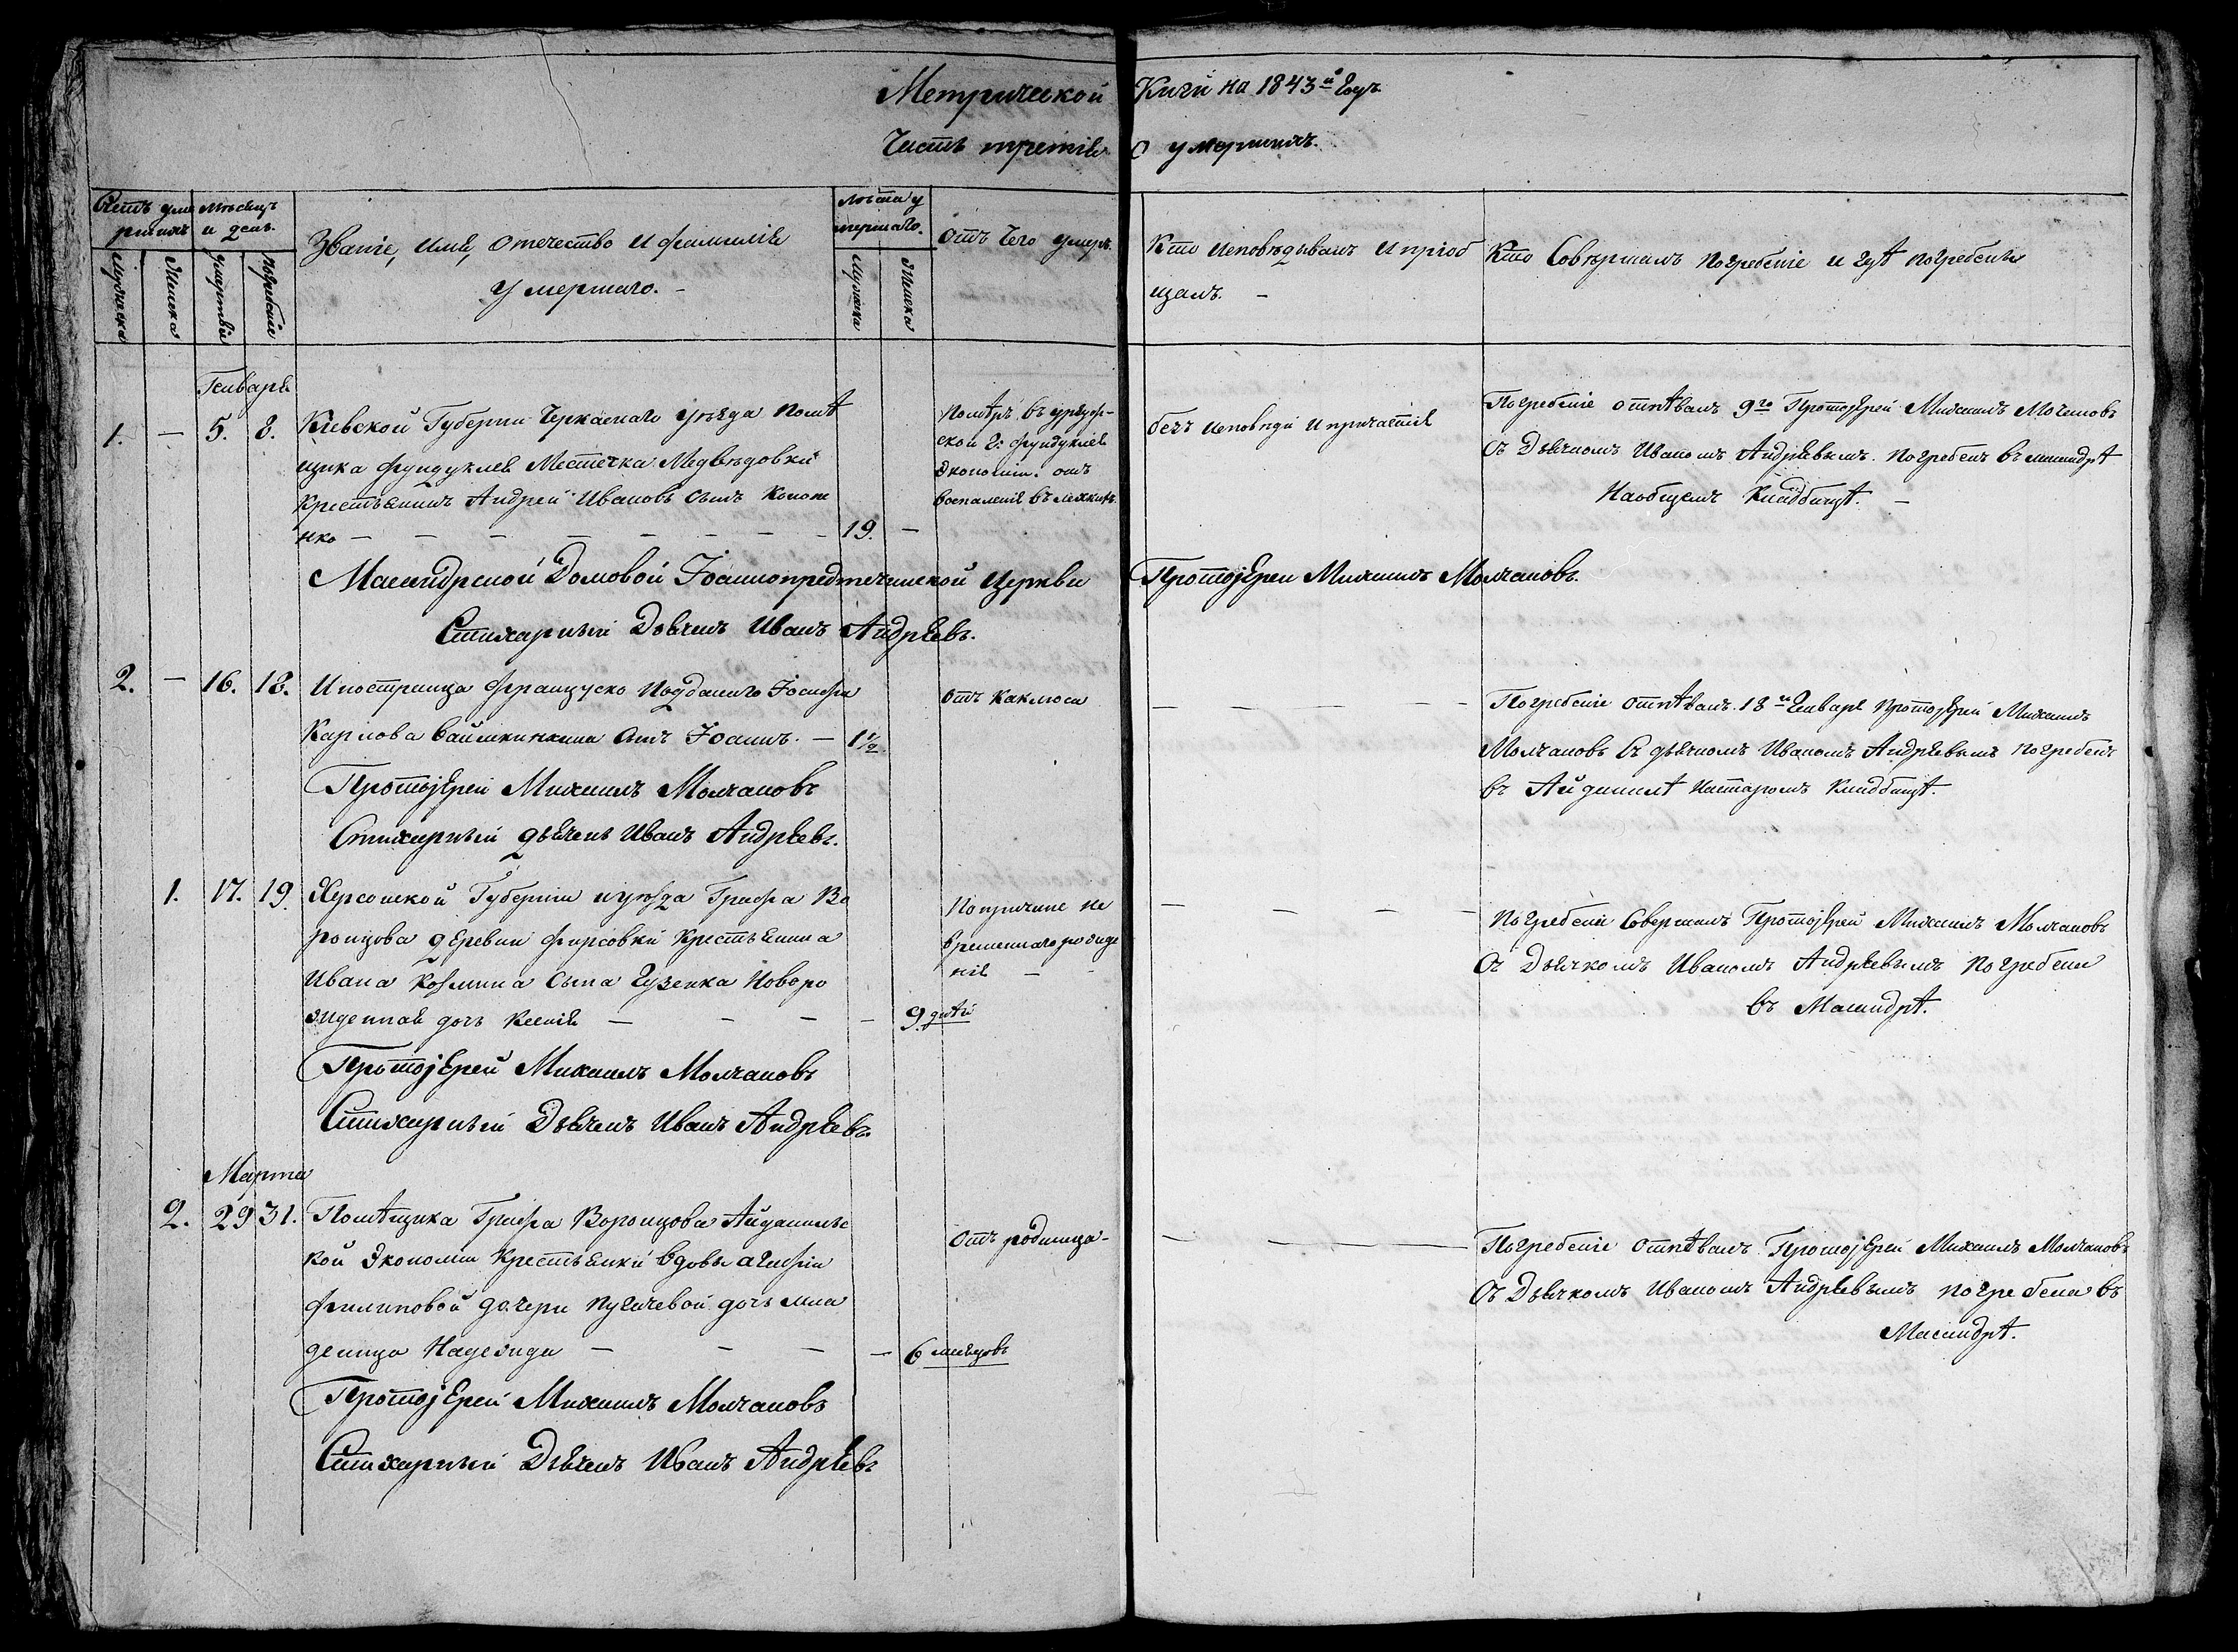 Метрической Книги на 1843й Годъ.
Часть третія о умершихъ.
Счетъ уме
ршихъ
Мѣсяцъ
и день.
Званіе, Имя, Отечество и фамилія
умершаго. –
Лѣта у
мершаго.
Отъ чего умеръ.
Кто исповѣдывалъ и пріоб
щалъ. –
Кто Совѣршалъ погребеніе и гдѣ погребены
Мужеска
Женска
смерти
погребенія
Мужеска
Женска
Генваря
1. – 5. 8.
Кіевской Губерніи Черкаскаго уѣзда помѣ
щика фундуклея Местечка Медвѣдовки
крестьянинъ Андрей Ивановъ сынъ Кононе
нко – – – – – – – 19. –
Помѣръ въ гурзуф-
ской г: фундуклея
экономіи. отъ
воспаленія въ легкихъ.
безъ исповѣди и причастія
Погребеніе отпѣвалъ 9го Протоіерей Михаилъ Молчановъ
съ Дьячкомъ Иваномъ Андрѣевымъ. погребенъ въ масандрѣ
На общемъ Кладбищѣ. –
Масандрской Домовой Іоаннопредтечинской Церкви Протоіерей Михаилъ Молчановъ.
Стихарный Дьячекъ Иванъ Андрѣевъ.
2. – 16. 18.
Иностранца Французско подданаго Іосифа
Карлова сынъ Іоаннъ. – 1½
Отъ Каклюса
– – – – –
Погребеніе отпѣвалъ 18го Генваря протоіерей Михаилъ
Молчановъ съ дьячкомъ Иваномъ Андрѣевымъ погребенъ
въ Айданилѣ на старомъ Кладбищѣ.
Протоіерей Михаилъ Молчановъ
Стихарный дьячекъ Иванъ Андрѣевъ.
1. 17. 19.
Херсонской Губерніи и уѣзда Графа Во
ронцова деревни фирсовки крестьянина
Ивана Козмина сына Гузенка Новоро
жденная дочь Ксенія – – – – 9. дней
По причине не
временнаго рожде
нія – –
– – – –
погребеніе Совершалъ Протоіерей Михаилъ Молчановъ
съ Дьячкомъ Иваномъ Андрѣевымъ погребена
въ Масандрѣ.
Протоіерей Михаилъ Молчановъ
Стихарный Дьячекъ Иванъ Андрѣевъ
Марта
2. 29 31.
Помѣщика Графа Воронцова Айданильс
кой Экономіи Крестьянки вдовы агафіи
филиповой дочери Пугачевой дочь мла
деница Надежда – – – – 6 месяцовъ
Отъ родимца –
– – –
Погребеніе отпѣвалъ Протоіерей Михаилъ Молчановъ
съ Дьячкомъ Иваномъ Андрѣевымъ погребена въ
Масандрѣ.
Протоіерей Михаилъ Молчановъ
Стихарный Дьячекъ Иванъ Андрѣевъ